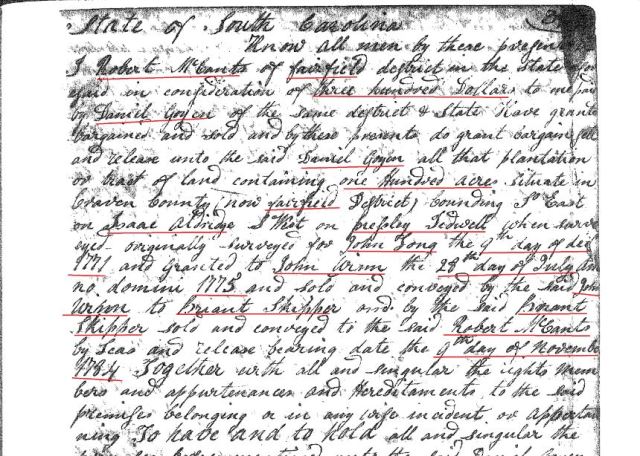 State of South Carolina
Know all men by these presents
I Robert McCants of fairfield district in the state
said in consideration of three hundred Dollars to me paid
by Daniel Goyen of the same district & State have grant
bargained and sold and by these presents do grant bargain sell
and release unto the said Daniel Goyen all that plantation
or tract of land containing one Hundred acres situate in
Craven County (now fairfield District) bounding So East
on Isaac Aldridge S West on pressley Tidwell when surv
eyed originally surveyed for John Long the 9th day of dec
1771 and granted to John Winn the 29th day of July An
no domini 1775 and sold and conveyed by the said John
Winn to Bryant Skipper and by the said Bryant
Skipper sold and conveyed to the said Robert McCants
by Leas and release bearing date the 9th day of November
1784 Together with all and singular the rights mem
bers and appurtenances and Hereditaments to the said
premises belonging or in any wise incident or appertai
ning To have and to hold all and singular the
unto the said Daniel Goyen